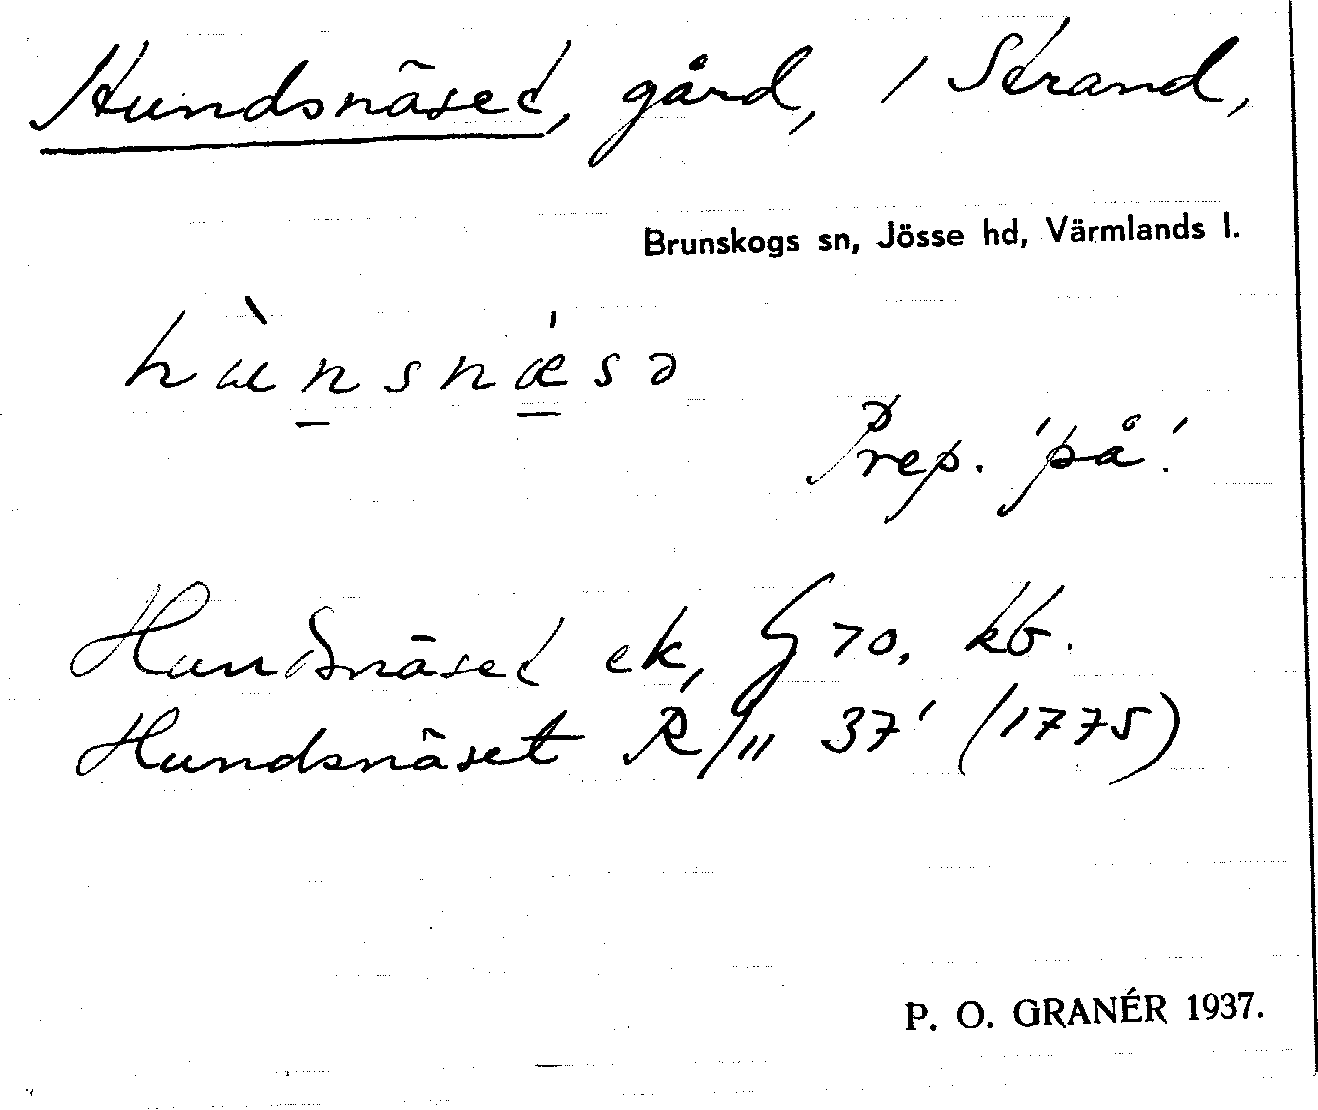 Hundsnäset, gård, / Strand,
Brunskogs sn, Jösse hd, Värmlands l.
hùnsnǽsə
Prep. 'på'.
Hundsnäset ek, G 70, kb.
Hundsnäset R/11 37' (1775)
P. O. GRANÉR 1937.